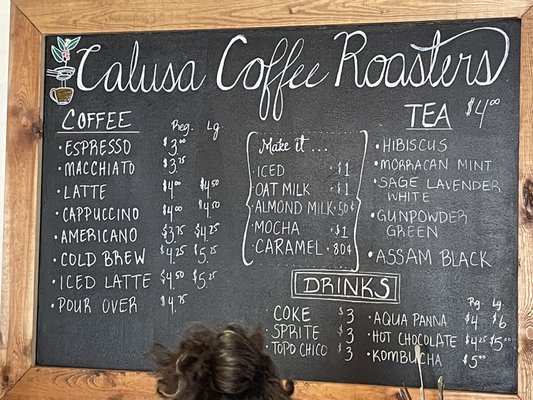 Calusa Coffee Roasters
COFFEE Reg. Lg.
• ESPRESSO $3.00
• MACCHIATO $3.75
• LATTE $4.00 $4.50
• CAPPUCCINO $4.00 $4.50
• AMERICANO $3.75 $4.25
• COLD BREW $4.25 $5.25
• ICED LATTE $4.50 $5.25
• POUR OVER $4.75
Make it ...
• ICED • $1
• OAT MILK • $1
• ALMOND MILK • 50¢
• MOCHA • $1
• CARAMEL • 80¢
TEA $4.00
• HIBISCUS
• MORRACAN MINT
• SAGE LAVENDER
WHITE
• GUNPOWDER
GREEN
• ASSAM BLACK
DRINKS
COKE $3
• SPRITE $3
• TOPO CHICO $3
Rg. Lg.
• AQUA PANNA $4 $6
• HOT CHOCOLATE $4.25 $5.00
• KOMBUCHA $5.00